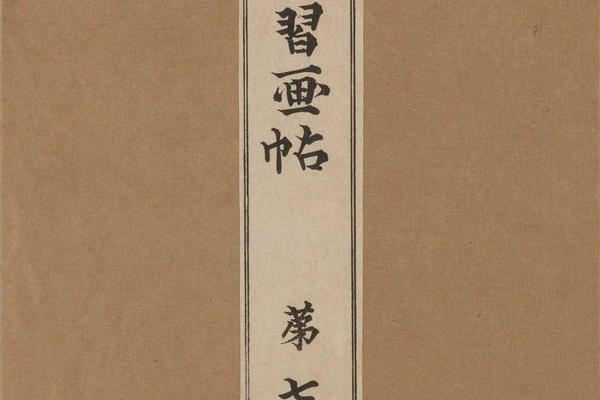 習画帖 第七